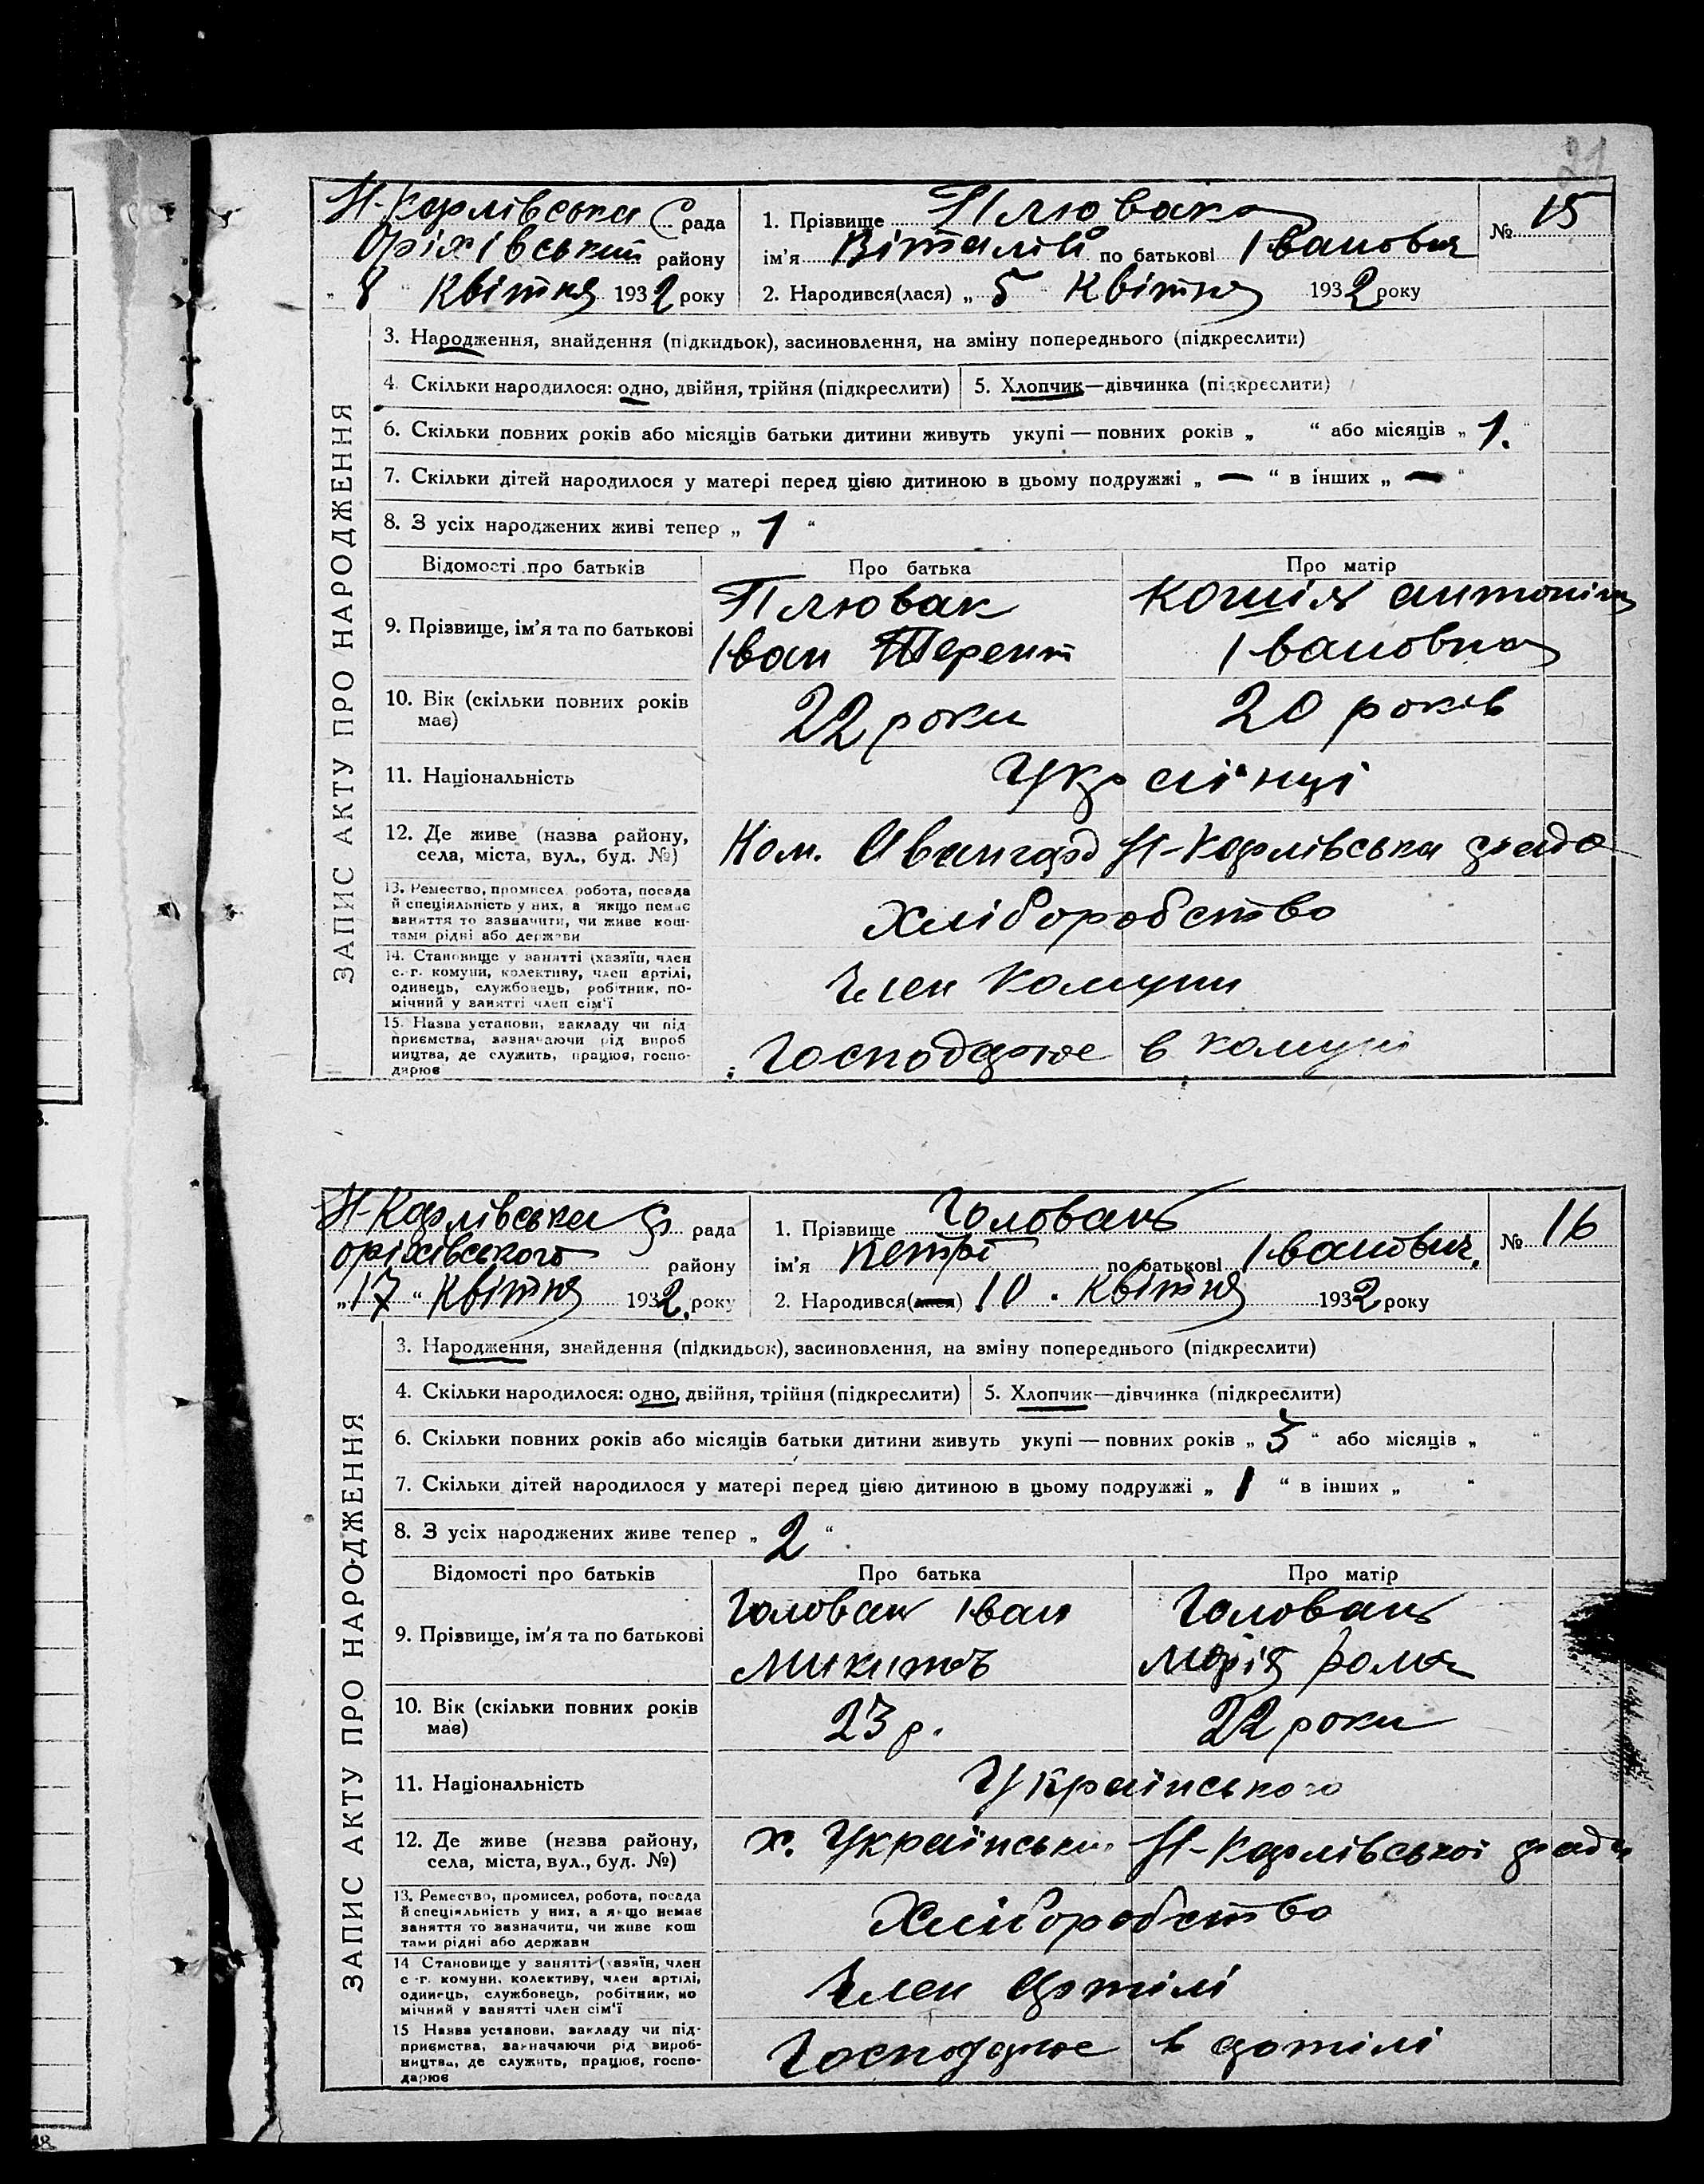 21
Н-Карлівська С рада
Оріхівський району
„ 8 “ Квітня 1932 року
1. Прізвище Плювака
ім’я Віталій по батькові Іванович
№ 15
2. Народився(лася) „ 5 “ Квітня 1932 року
ЗАПИС АКТУ ПРО НАРОДЖЕННЯ
3. Народження, знайдення (підкидьок), засиновлення, на зміну попереднього (підкреслити)
4. Скільки народилося: одно, двійня, трійня (підкреслити) 5. Хлопчик—дівчинка (підкреслити)
6. Скільки повних років або місяців батьки дитини живуть укупі — повних років „ “ або місяців „ 1. “
7. Скільки дітей народилося у матері перед цією дитиною в цьому подружжі „ — “ в інших „ — “
8. З усіх народжених живі тепер „ 1 “
Відомості про батьків Про батька Про матір
9. Прізвище, ім’я та по батькові
Плювак
Іван Терент
Антоніна
Івановна
10. Вік (скільки повних років має)
22 роки 20 років
11. Національність
Українці
12. Де живе (назва району,
села, міста, вул., буд. №)
Ком. Авангард Н-Карлівська рада
13. Ремество, промисел, робота, посада
й спеціяльність у них, а якщо немає
заняття то зазначити, чи живе кош-
тами рідні або держави
Хліборобство
14. Становище у занятті (хазяїн, член
с.-г. комуни, колективу, член артілі,
одинець, службовець, робітник, по-
мічний у занятті член сім’ї
Член Комуни
15. Назва установи, закладу чи під
приємства, зазначаючи рід вироб
ництва, де служить, працює, госпо-
дарює
Господарює в комуні
Н-Карлівська с рада
оріхівського району
„ 17 “ Квітня 1932. року
1. Прізвище Головань
ім’я Петрі по батькові Іванович.
№ 16
2. Народився(лася) 10. Квітня 1932 року
ЗАПИС АКТУ ПРО НАРОДЖЕННЯ
3. Народження, знайдення (підкидьок), засиновлення, на зміну попереднього (підкреслити)
4. Скільки народилося: одно, двійня, трійня (підкреслити) 5. Хлопчик—дівчинка (підкреслити)
6. Скільки повних років або місяців батьки дитини живуть укупі — повних років „ “ або місяців „ “
7. Скільки дітей народилося у матері перед цією дитиною в цьому подружжі „ 1 “ в інших „ “
8. З усіх народжених живе тепер „ 2 “
Відомості про батьків Про батька Про матір
9. Прізвище, ім’я та по батькові
Головань Іван
Микитов
Головань
Марія Рома
10. Вік (скільки повних років має)
23 р. 22 роки
11. Національність
Українського
12. Де живе (назва району,
села, міста, вул., буд. №)
х. Українськи Н-Карлівської ради
13. Ремество, промисел, робота, посада
й спеціяльність у них, а якщо немає
заняття то зазначити, чи живе кош
тами рідні або держави
Хліборобство
14 Становище у занятті (хазяїн, член
с -г. комуни, колективу, член артілі,
одинець, службовець, робітник, по
мічний у занятті член сім’ї
Член артілі
15 Назва установи, закладу чи під-
приємства, зазначаючи рід вироб-
ництва, де служить, працює, госпо-
дарює
Господарює в артілі